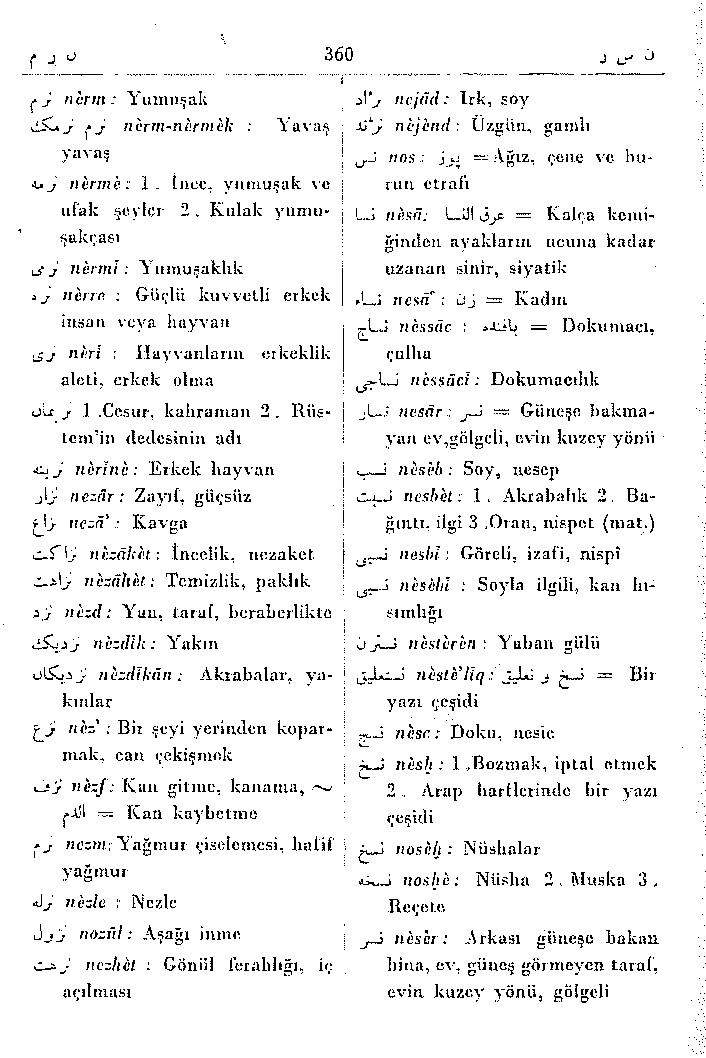 ن ر م 360 ن س ر
نرم nèrm : Yumuşak
نرم نرمك nèrm-nèrmèk : Yavaş
yavaş
نرمه nèrmè: 1. İnce, yumuşak ve
ufak şeyler 2. Kulak yumu-
şakçası
نرمى nèrmî : Yumuşaklık
نره nèrre : Güçlü kuvvetli erkek
insan veya hayvan
نرى nèrî : Hayvanların erkeklik
aleti, erkek olma
نريمان 1 .Cesur, kahraman 2. Rüs-
tem'in dedesinin adı
نرينه nèrînè: Erkek hayvan
نزار nezâr : Zayıf, güçsüz
نزاع nezâ' : Kavga
نزاكت nèzâkèt : İncelik, nezaket
نزاهت nèzâhèt : Temizlik, paklık
نزد nèzd : Yan, taraf, beraberlikte
نزديك nèzdîk : Yakın
نزديكان nèzdîkân : Akrabalar, ya-
kınlar
نزع nèz' : Bir şeyi yerinden kopar-
mak, can çekişmek
نزف nèzf : Kan gitme, kanama, ~
الدم = Kan kaybetme
نزم nezm: Yağmur çiselemesi, hafif
yağmur
نزله nèzle : Nezle
نزول nozûl : Aşağı inme
نزهت nezhèt : Gönül ferahlığı, iç
açılması
نژاد nejâd : Irk, soy
نژند nèjènd : Üzgün, gamlı
نس nos : پوز = Ağız, çene ve bu-
run etrafı
نسا nèsâ: عرق النسا = Kalça kemi-
ğinden ayakların ucuna kadar
uzanan sinir, siyatik
نساء nesâ' : زن = Kadın
نساج nèssâc : بافنده = Dokumacı,
çulha
نساجى nèssâcî : Dokumacılık
نسار nesâr : نسر = Güneşe bakma-
yan ev,gölgeli, evin kuzey yönü
نسب nèsèb : Soy, nesep
نسبت nesbèt : 1. Akrabalık 2. Ba-
ğıntı, ilgi 3 .Oran, nispet (mat.)
نسبى nesbî : Göreli, izafi, nispî
نسبى nèsèbî : Soyla ilgili, kan hı-
sımlığı
نسترن nèstèrèn : Yaban gülü
نستعليق nèstè'lîq : نسخ و تعليق = Bir
yazı çeşidi
نسج nèsc : Doku, nesic
نسخ nèsḫ : 1 .Bozmak, iptal etmek
2. Arap harflerinde bir yazı
çeşidi
نسخ nosèḫ : Nüshalar
نسخه nosḫè : Nüsha 2. Muska 3.
Reçete
نسر nèsèr : Arkası güneşe bakan
bina, ev, güneş görmeyen taraf,
evin kuzey yönü, gölgeli